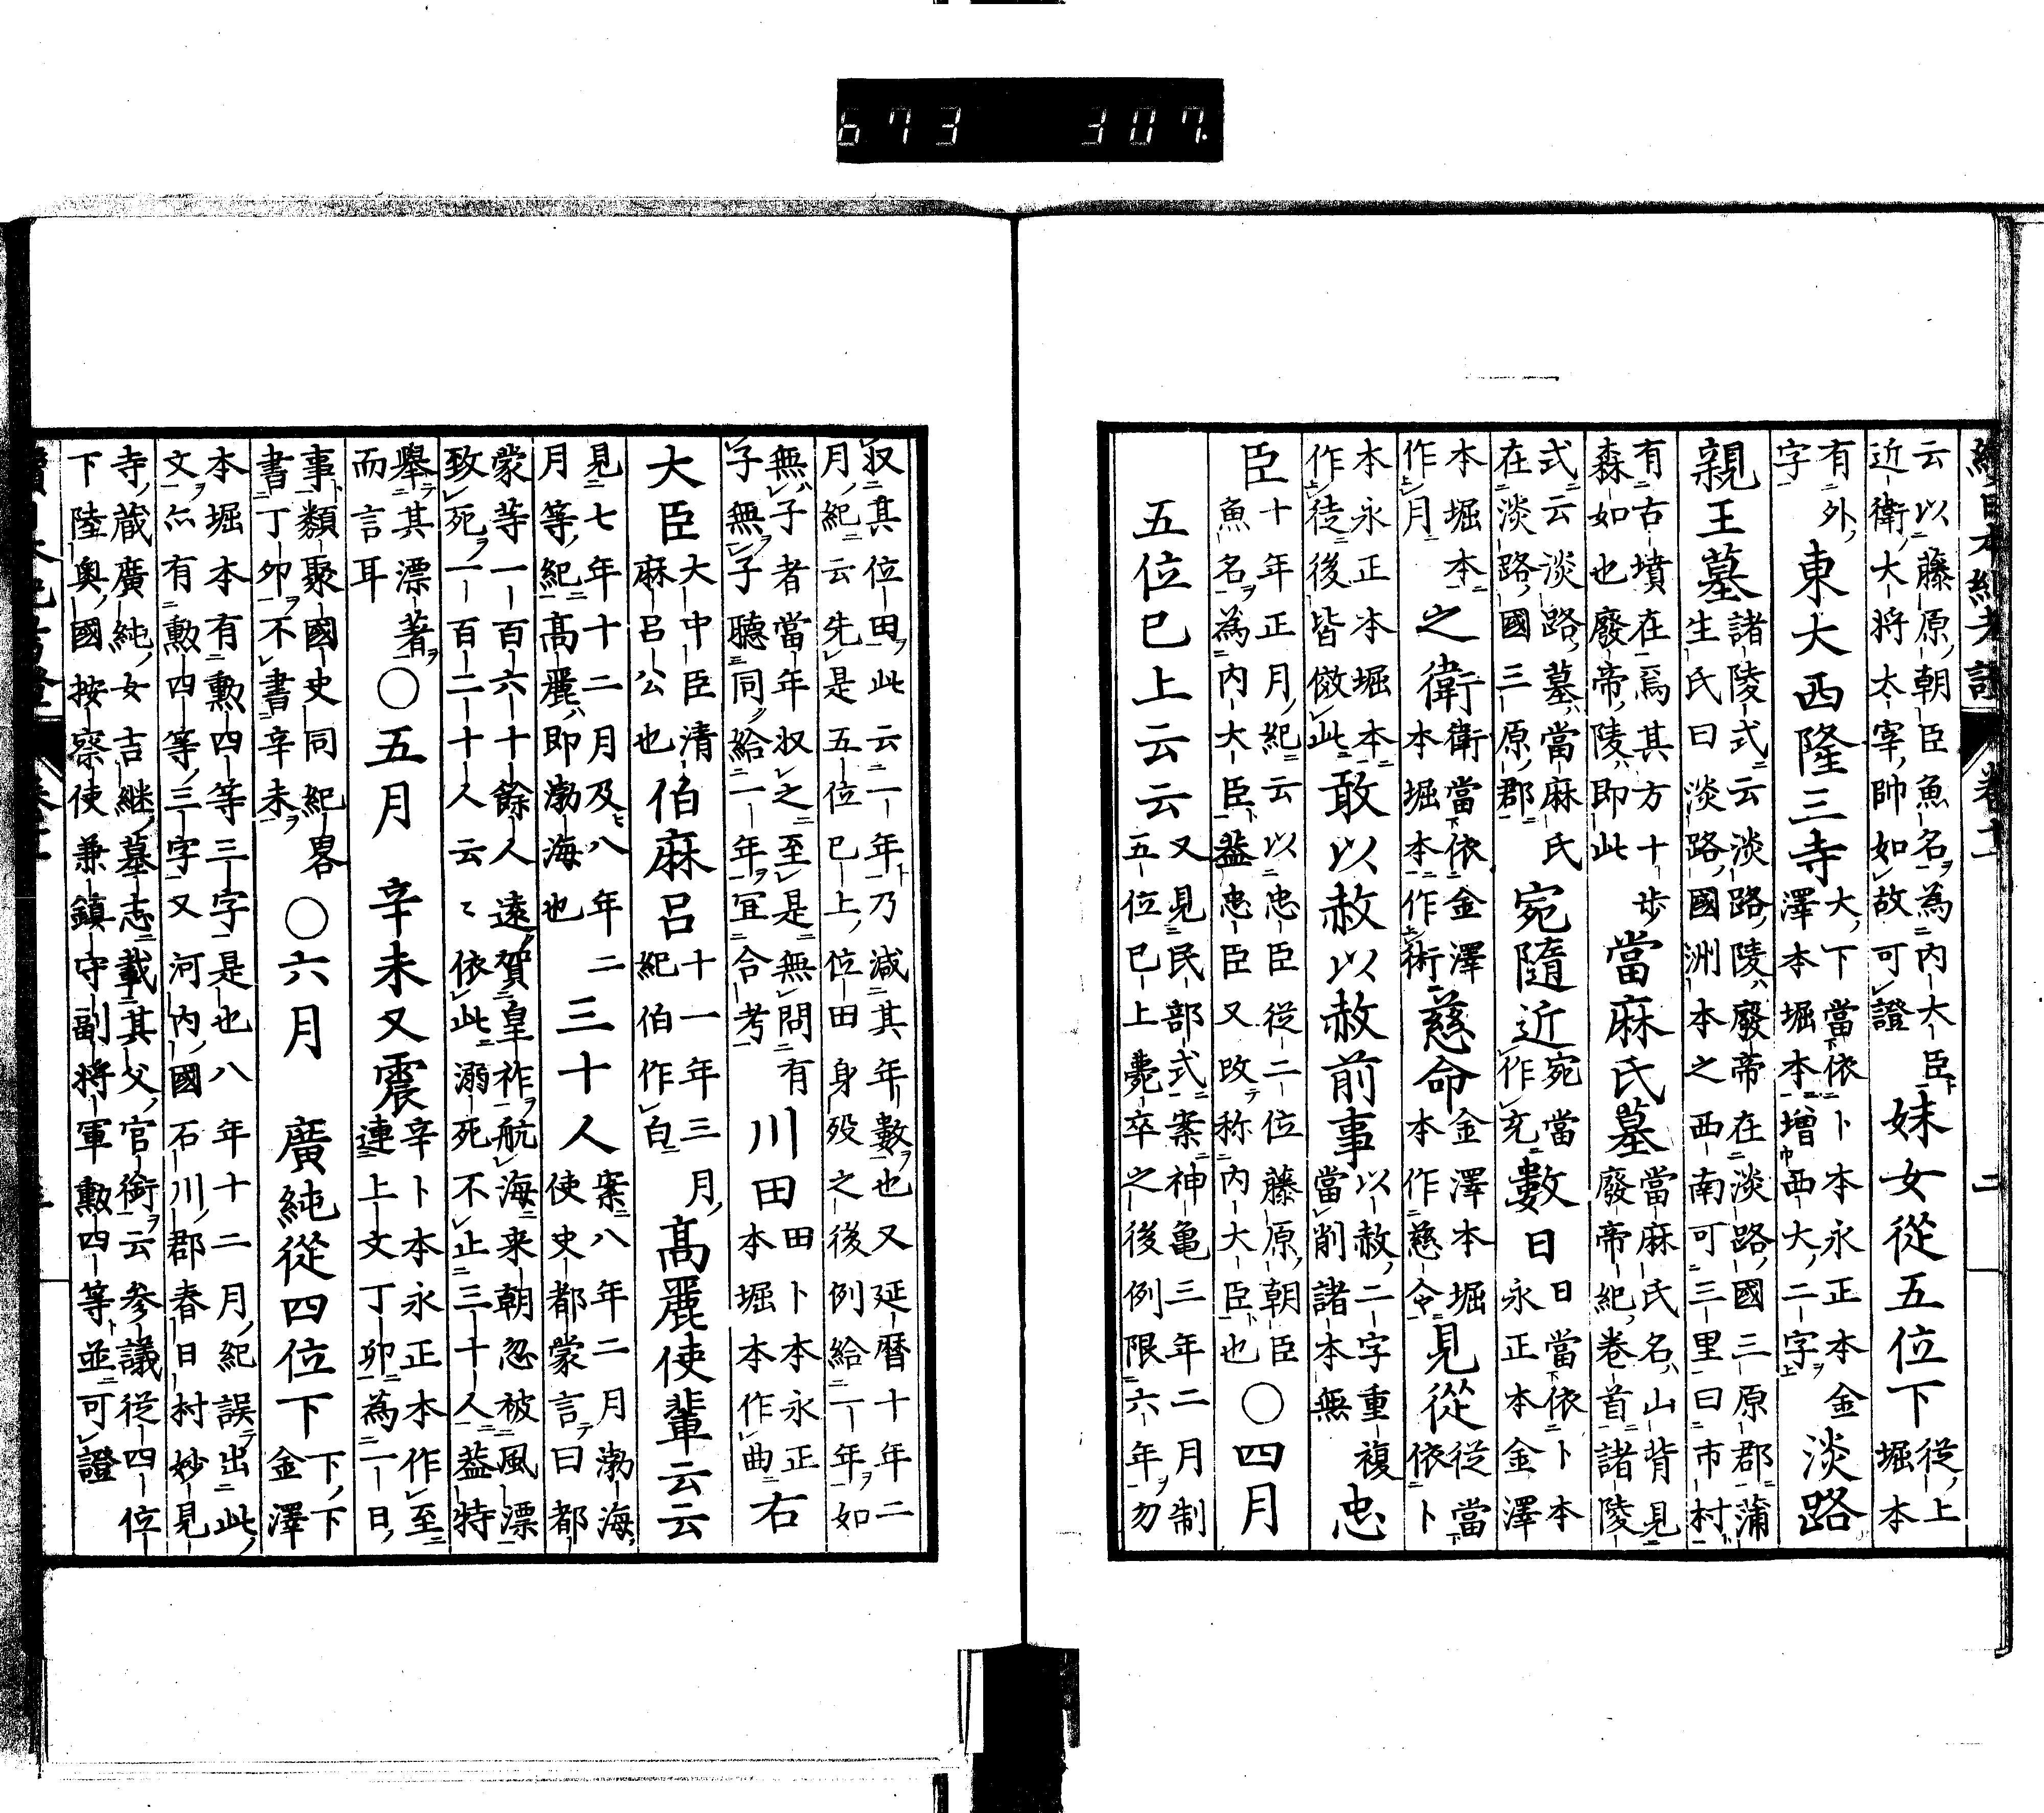 673 307
續日本紀考證 卷十二 二
云以藤原朝臣魚名為內大臣
近衛大將太宰帥如故可證
妹女從五位下
從上
堀本
有外
字
東大西隆三寺
大下當依卜本永正本金
澤本堀本增西大二字
淡路
親王墓
諸陵式云淡路陵廢帝在淡路國三原郡蒲
生氏曰淡路國洲本之西南可三里曰市村
有古墳在焉其方十步
森如也廢帝陵即此
當麻氏墓
當麻氏名山背見
廢帝紀卷首諸陵
式云淡路墓當麻氏
在淡路國三原郡
宛隨近
宛當
作充
數日
日當依卜本
永正本金澤
本堀本
作月
之衛
衛當依金澤
本堀本作術
慈命
金澤本堀
本作慈令
見從
從當
依卜
本永正本堀本
作徒後皆倣此
敢以赦以赦前事
以赦二字重複
當削諸本無
忠
臣
十年正月紀云以忠臣從二位藤原朝臣
魚名為內大臣葢忠臣又改称內大臣也
○四月
五位已上云云
又見民部式案神亀三年二月制
五位已上薨卒之後例限六年勿
収其位田此云一年乃減其年數也又延暦十年二
月紀云先是五位已上位田身歿之後例給一年如
無子者當年収之至是無問有
子無子聽同給一年宜合考
川田
田卜本永正
本堀本作曲
右
大臣
大中臣清
麻呂公也
伯麻呂
十一年三月
紀伯作白
髙麗使輩云云
見七年十二月及八年二
月等紀髙麗即渤海也
三十人
案八年二月渤海
使史都蒙言曰都
蒙等一百六十餘人遠賀皇祚航海来朝忽被風漂
致死一百二十人云々依此溺死不止三十人葢特
舉其漂著
而言耳
○五月
辛未又震
辛卜本永正本作至
連上文丁卯為一日
事類聚國史同紀畧
書丁卯不書辛未
○六月
廣純從四位下
下下
金澤
本堀本有勲四等三字是也八年十二月紀誤出此
文亦有勲四等三字又河內國石川郡春日村妙見
寺蔵廣純女吉継墓志載其父官銜云參議從四位
下陸奥國按察使兼鎮守副将軍勲四等並可證